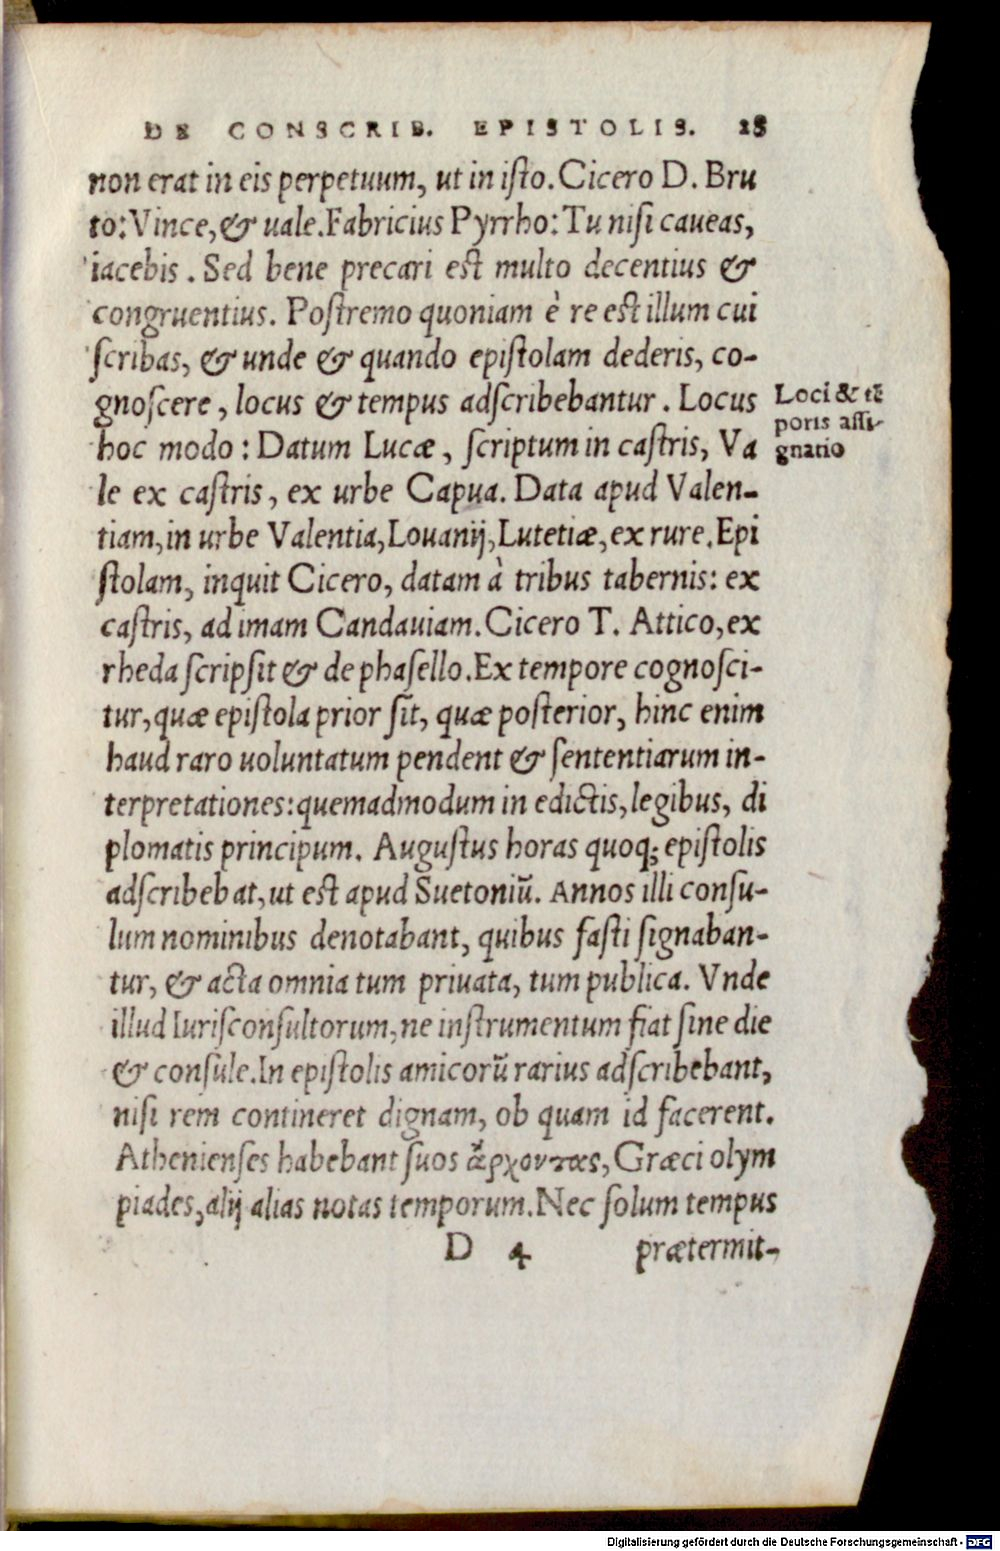 DE CONSCRIB. EPISTOLIS. 28
non erat in eis perpetuum, ut in isto. Cicero D. Bru
to: Vince, & uale. Fabricius Pyrrho: Tu nisi caueas,
iacebis. Sed bene precari est multo decentius &
congruentius. Postremo quoniam è re est illum cui
scribas, & unde & quando epistolam dederis, co-
gnoscere, locus & tempus adscribebantur. Locus
hoc modo: Datum Lucæ, scriptum in castris, Va
le ex castris, ex urbe Capua. Data apud Valen-
tiam, in urbe Valentia, Louanij, Lutetiæ, ex rure. Epi
stolam, inquit Cicero, datam à tribus tabernis: ex
castris, ad imam Candauiam. Cicero T. Attico, ex
rheda scripsit & de phasello. Ex tempore cognosci-
tur, quæ epistola prior sit, quæ posterior, hinc enim
haud raro uoluntatum pendent & sententiarum in-
terpretationes: quemadmodum in edictis, legibus, di
plomatis principum. Augustus horas quoq; epistolis
adscribebat, ut est apud Suetoniũ. Annos illi consu-
lum nominibus denotabant, quibus fasti signaban-
tur, & acta omnia tum priuata, tum publica. Vnde
illud Iurisconsultorum, ne instrumentum fiat sine die
& consule. In epistolis amicorũ rarius adscribebant,
nisi rem contineret dignam, ob quam id facerent.
Athenienses habebant suos ἄρχοντας, Græci olym
piades, alij alias notas temporum. Nec solum tempus
D 4 prætermit-
Loci & tẽ
poris assi-
gnatio
Digitalisierung gefördert durch die Deutsche Forschungsgemeinschaft - DFG